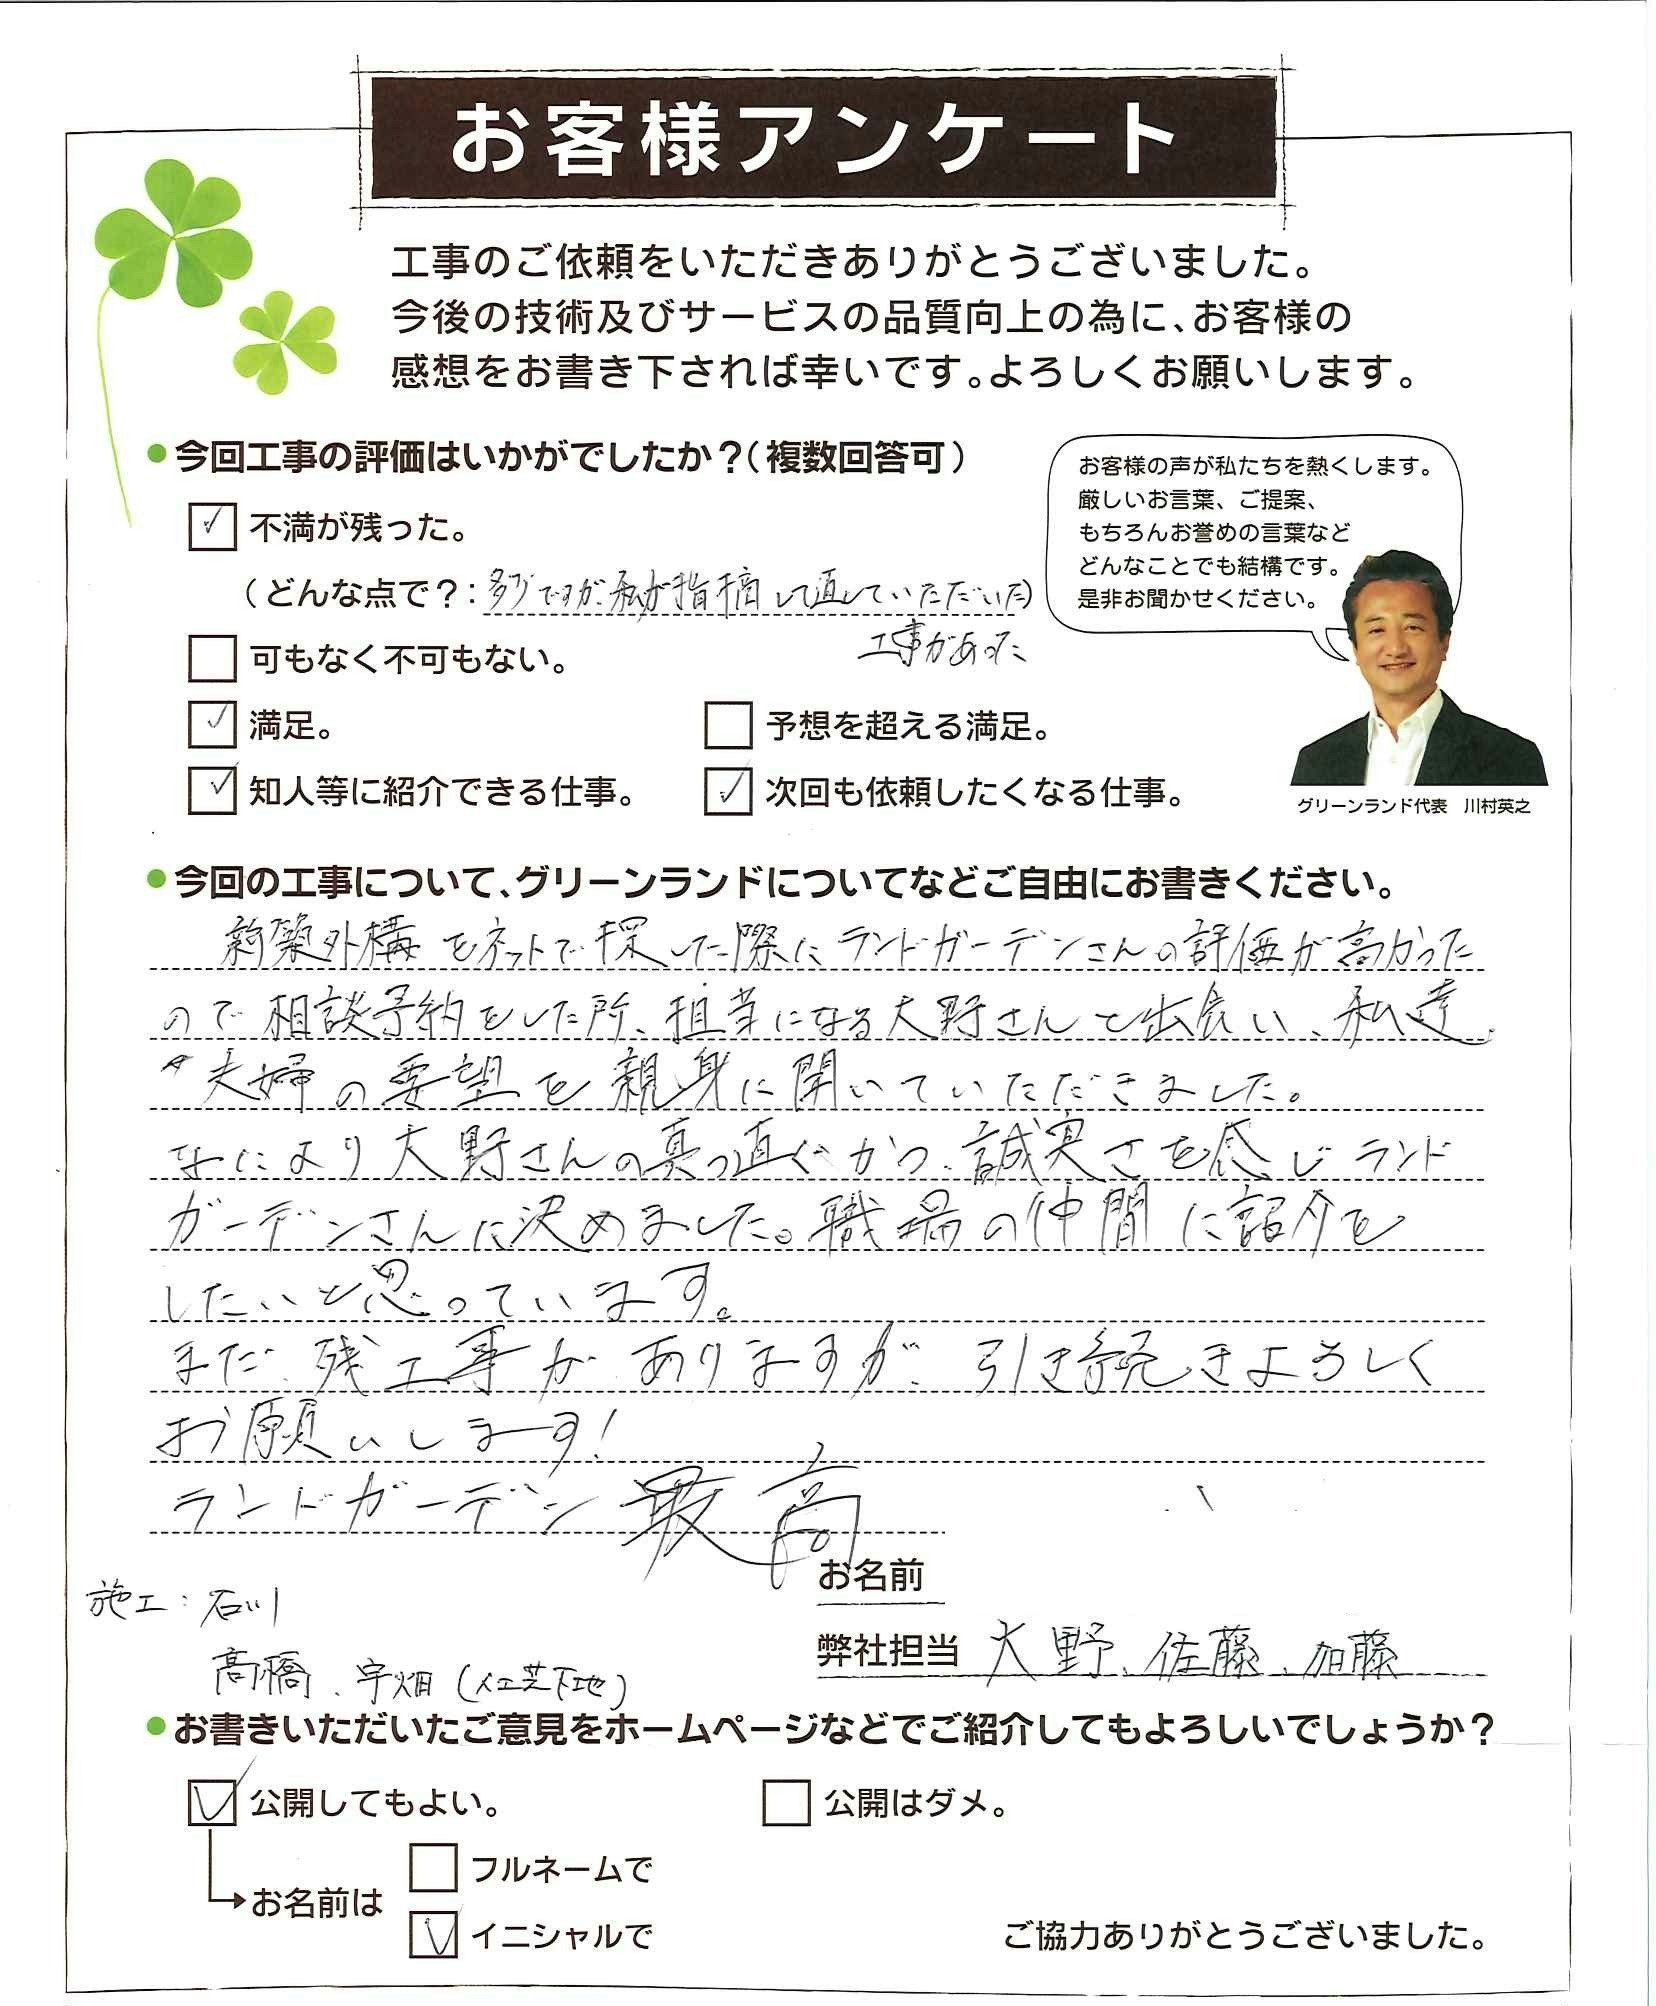 お客様アンケート
工事のご依頼をいただきありがとうございました。
今後の技術及びサービスの品質向上の為に、お客様の
感想をお書き下されば幸いです。よろしくお願いします。
●今回工事の評価はいかがでしたか？(複数回答可)
お客様の声が私たちを熱くします。
厳しいお言葉、ご提案、
もちろんお誉めの言葉など
どんなことでも結構です。
是非お聞かせください。
グリーンランド代表　川村英之
✓ 不満が残った。
(どんな点で？: 多少ですが、私が指摘して直していただいた)
工事があった
可もなく不可もない。
✓ 満足。
予想を超える満足。
✓ 知人等に紹介できる仕事。
✓ 次回も依頼したくなる仕事。
●今回の工事について、グリーンランドについてなどご自由にお書きください。
新築外構をネットで探した際にランドガーデンさんの評価が高かった
ので相談予約をした所、担当になる大野さんと出会い、私達
夫婦の要望を親身に聞いていただきました。
なにより大野さんの真っ直ぐかつ、誠実さを感じランド
ガーデンさんに決めました。職場の仲間に紹介を
したいと思っています。
まだ、残工事がありますが、引き続きよろしく
お願いします!
ランドガーデン最高
お名前
施工:石川
弊社担当 大野、佐藤、加藤
高橋、宇畑(人工芝下地)
●お書きいただいたご意見をホームページなどでご紹介してもよろしいでしょうか？
✓ 公開してもよい。
公開はダメ。
お名前は
フルネームで
✓ イニシャルで
ご協力ありがとうございました。